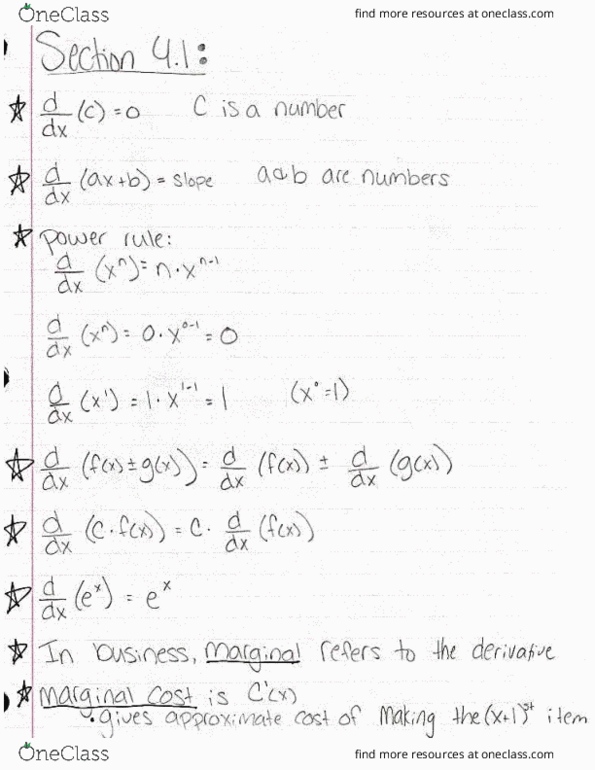 OneClass find more resources at oneclass.com
Section 4.1:
d/dx (c) = 0 C is a number
d/dx (ax+b) = slope a&b are numbers
power rule:
d/dx (xⁿ) = n·xⁿ⁻¹
d/dx (xⁿ) = 0·x⁰⁻¹ = 0
d/dx (x¹) = 1·x¹⁻¹ = 1 (x⁰=1)
d/dx (f(x) ± g(x)) = d/dx (f(x)) ± d/dx (g(x))
d/dx (C·f(x)) = C· d/dx (f(x))
d/dx (eˣ) = eˣ
In business, marginal refers to the derivative
marginal cost is C'(x)
• gives approximate cost of making the (x+1)ˢᵗ item
OneClass find more resources at oneclass.com